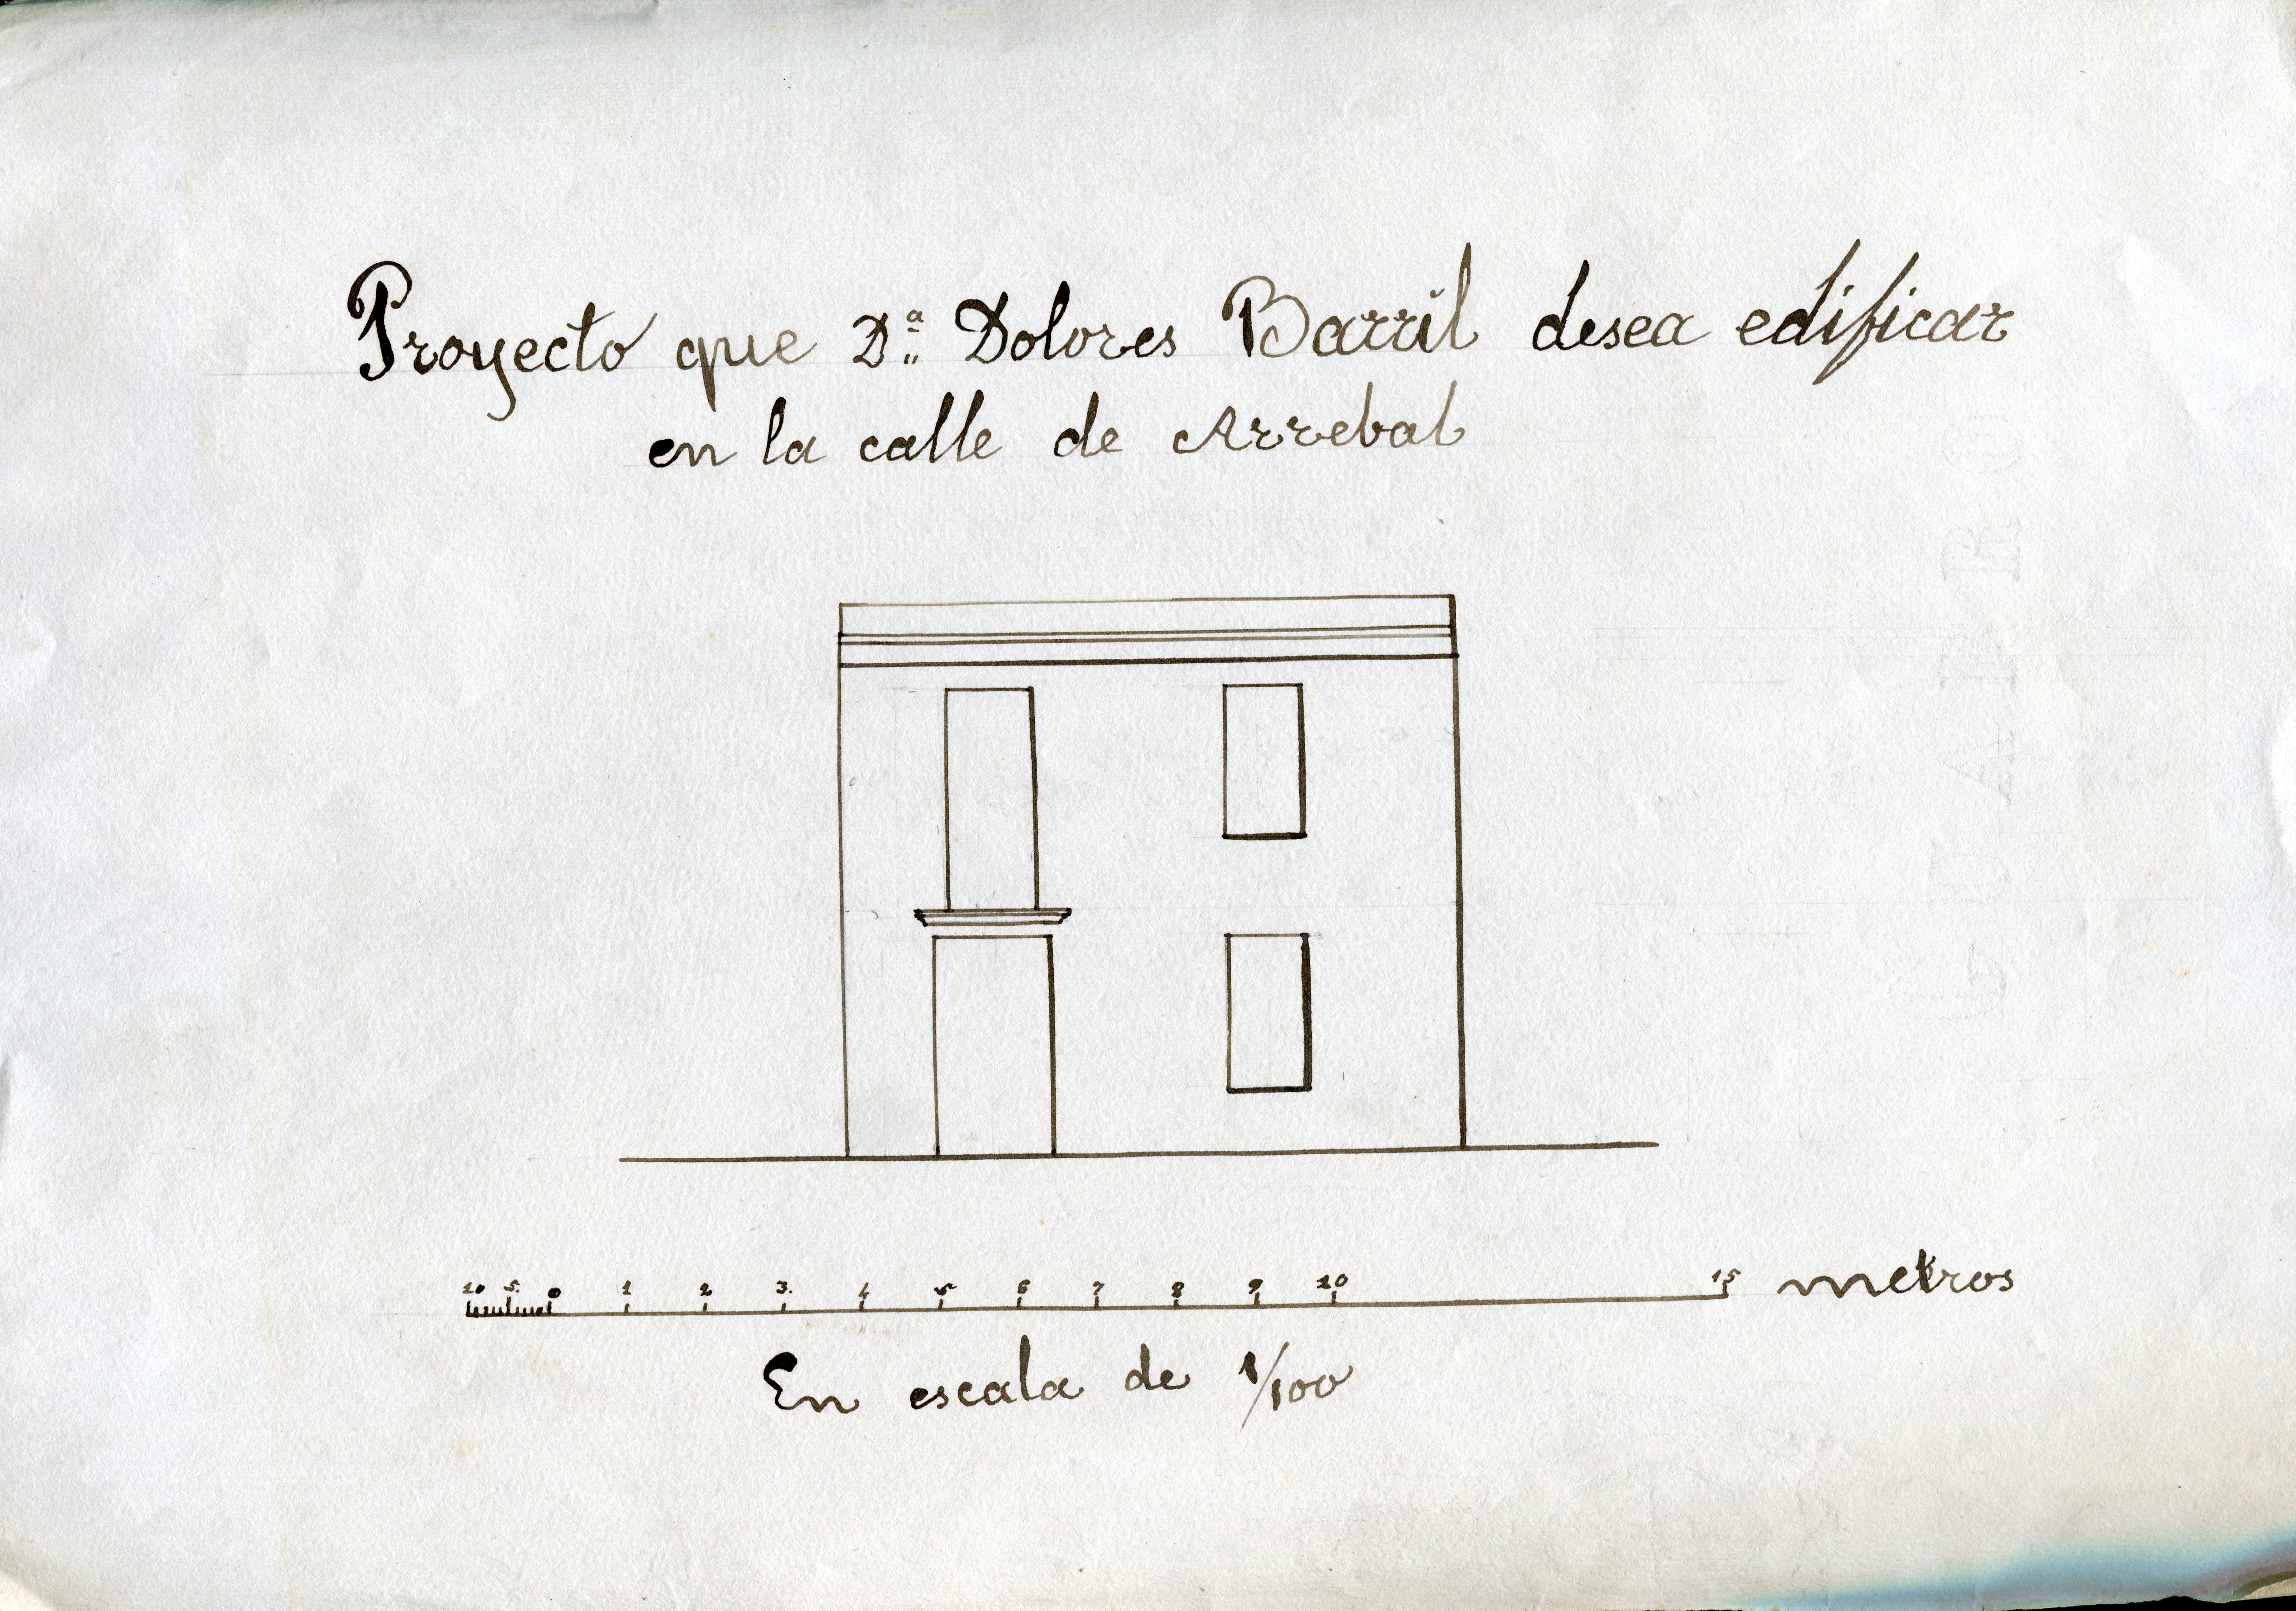 Proyecto que D.ª Dolores Barril desea edificar
en la calle de Arrebal
10 5 0 1 2 3 4 5 6 7 8 9 10 15 metros
En escala de 1/100